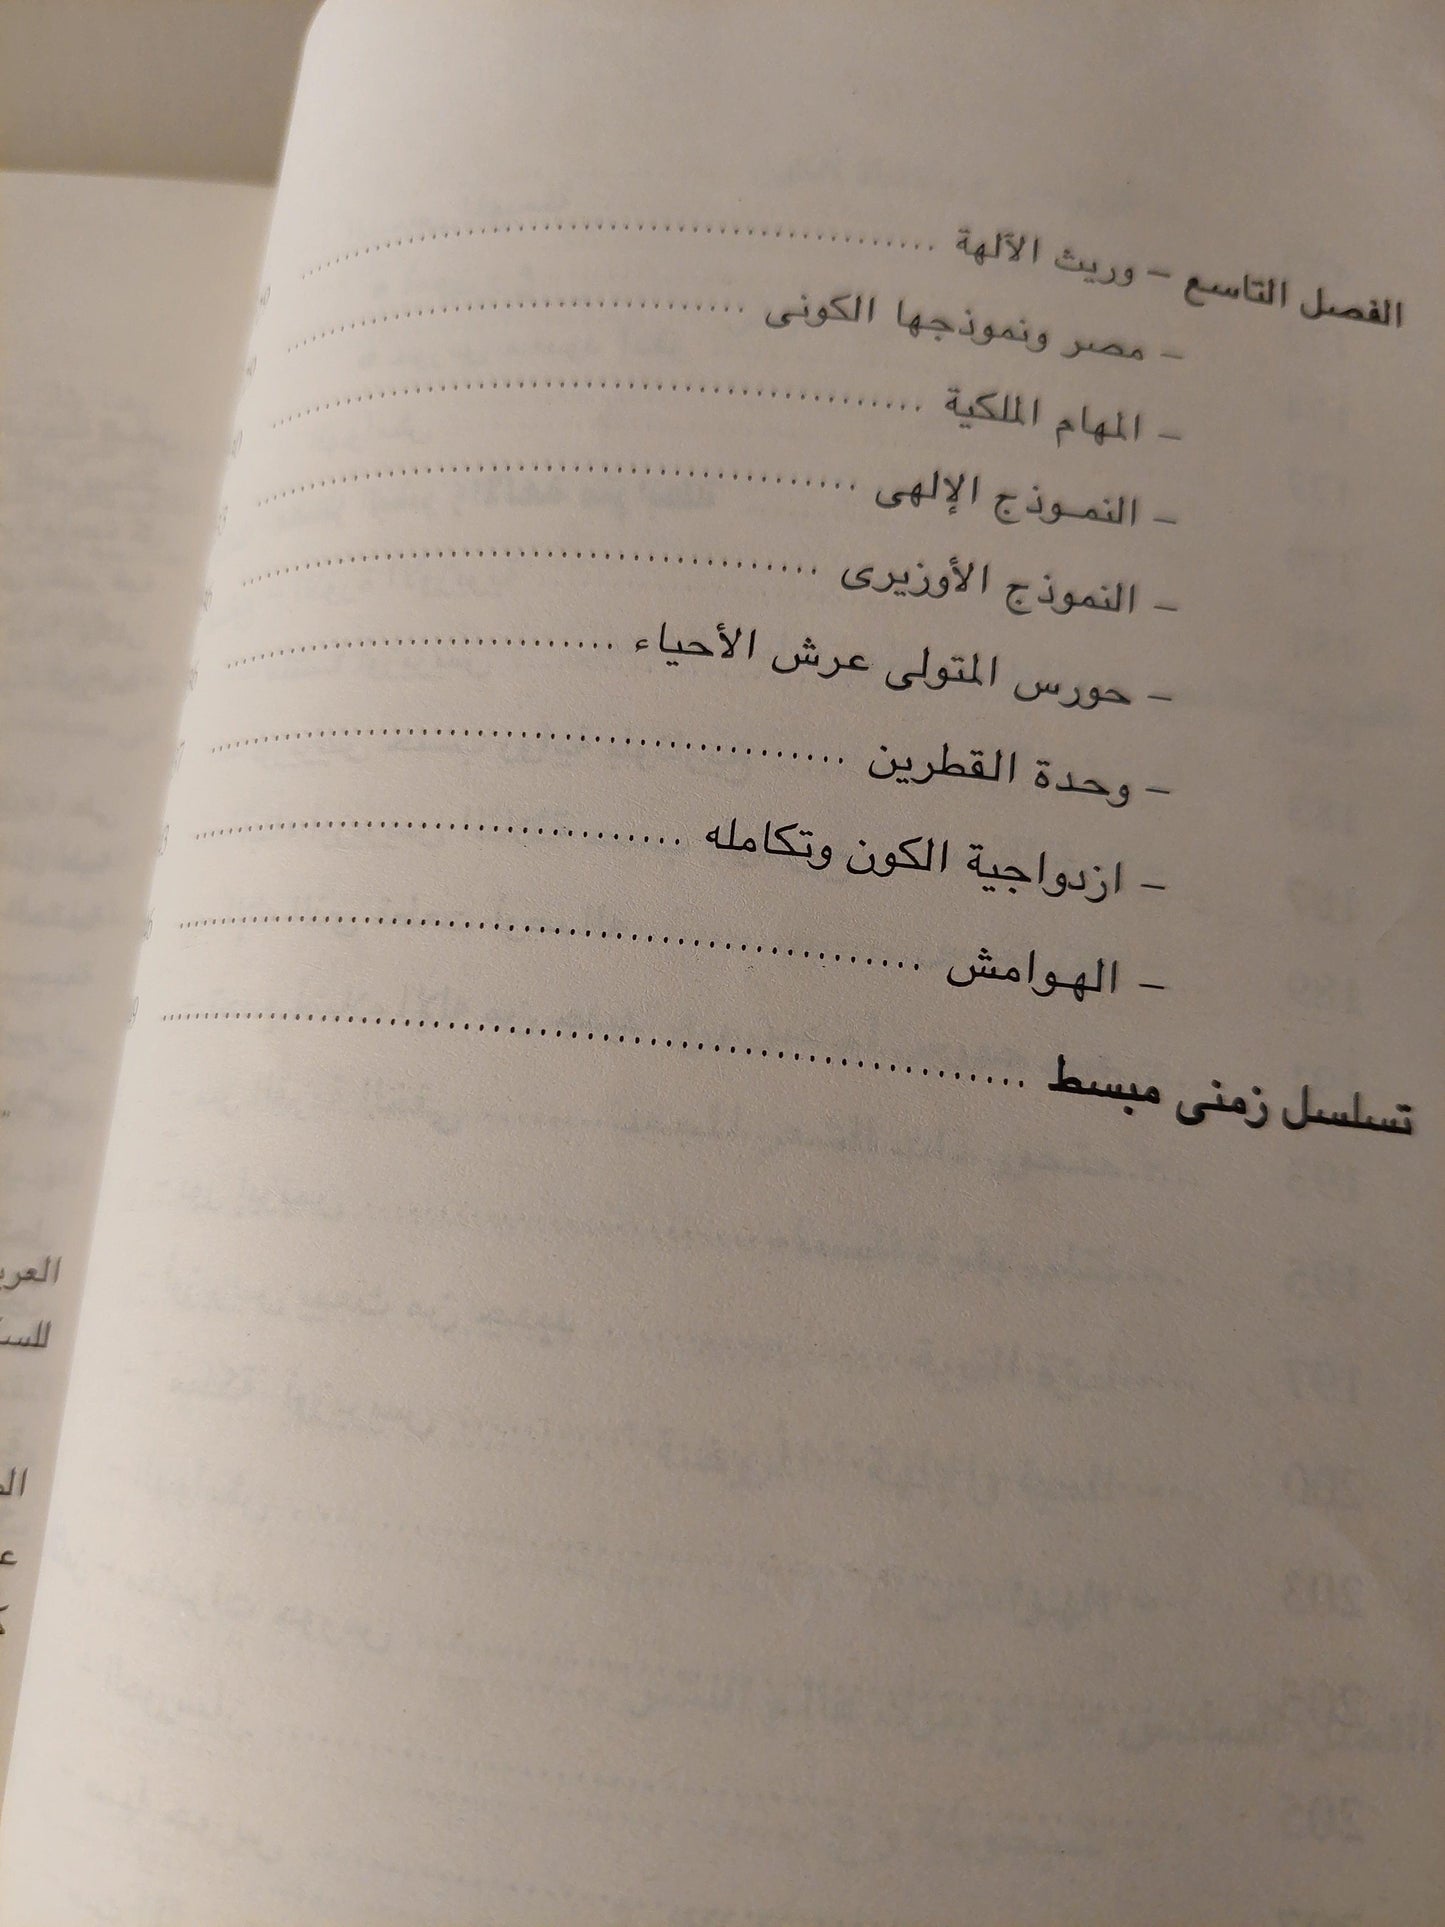 الفصل التاسع – وريث الآلهة
– مصر ونموذجها الكونى
– المهام الملكية
– النموذج الإلهى
– النموذج الأوزيرى
– حورس المتولى عرش الأحياء
– وحدة القطرين
– ازدواجية الكون وتكامله
– الهوامش
تسلسل زمنى مبسط